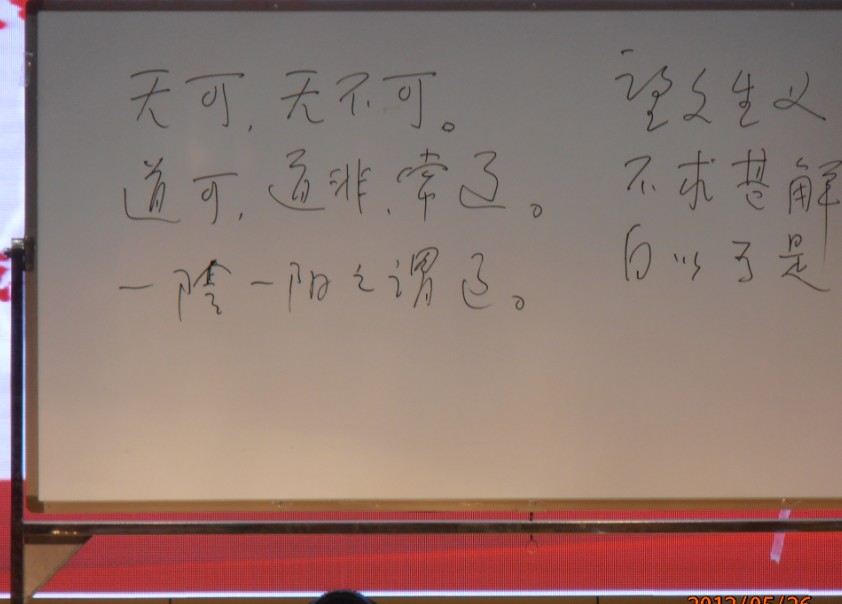 无可，无不可。
道可，道非，常道。
一陰一阳之谓道。
望文生义
不求甚解
自以为是
2012/05/26